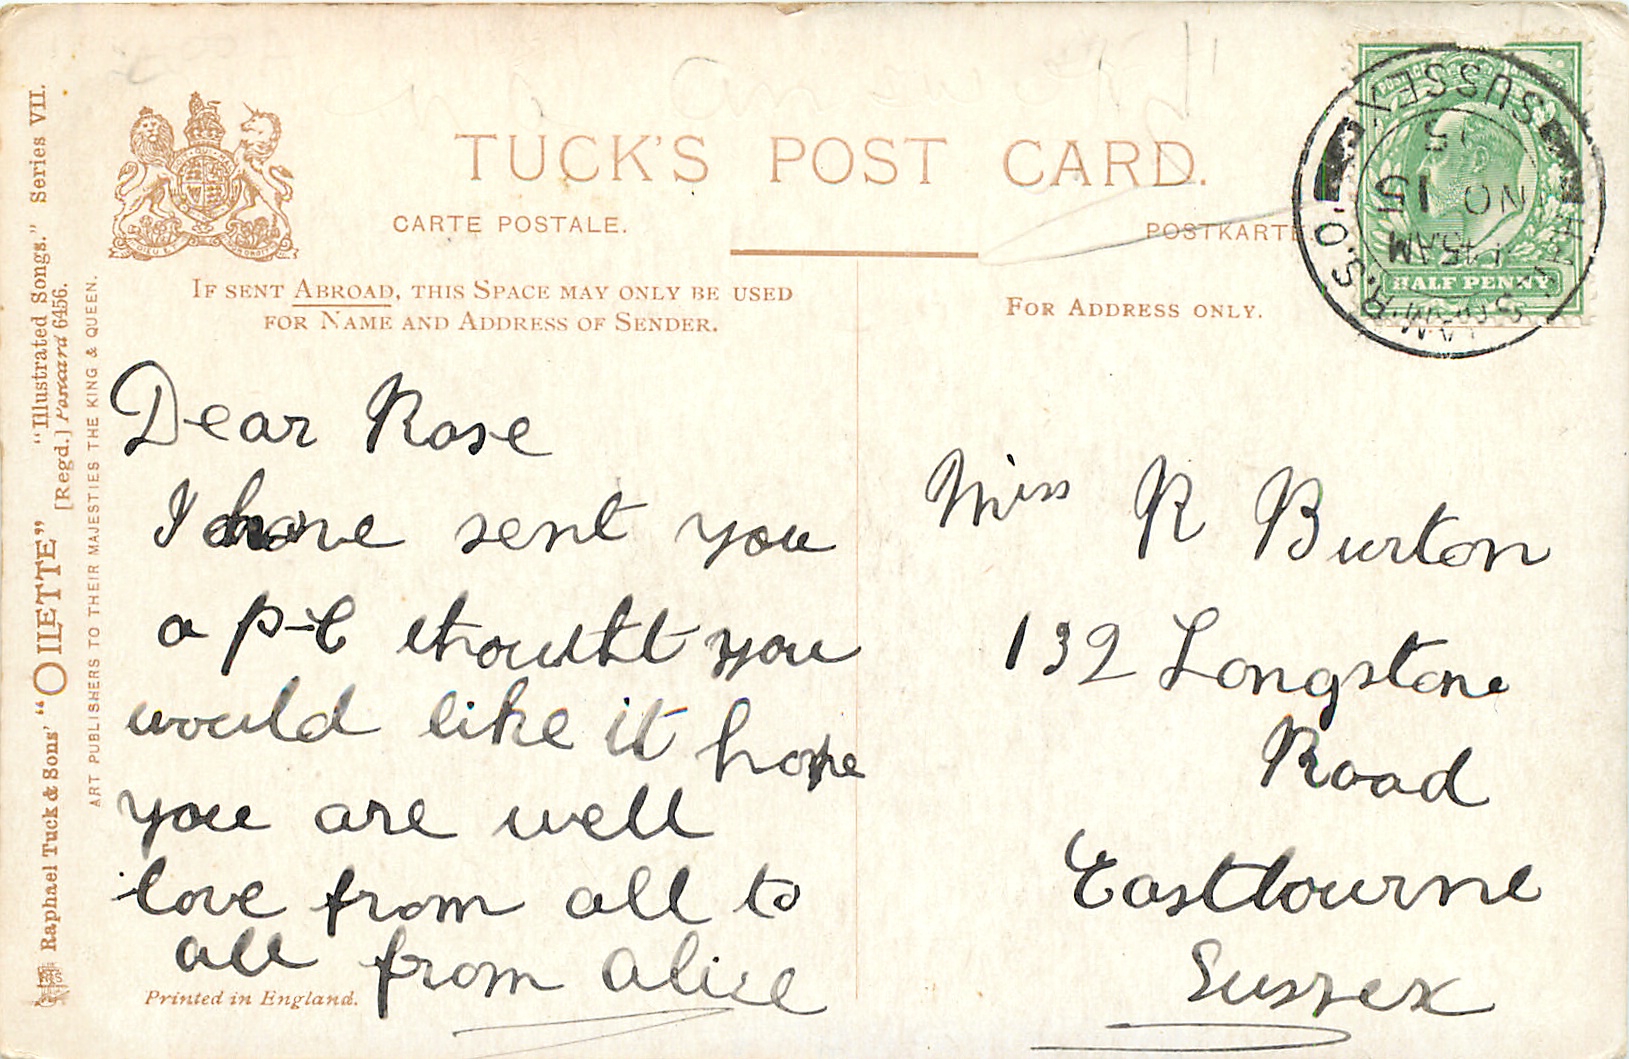 TUCK'S POST CARD.
CARTE POSTALE.
POSTKARTE
IF SENT ABROAD, THIS SPACE MAY ONLY BE USED
FOR NAME AND ADDRESS OF SENDER.
FOR ADDRESS ONLY.
Raphael Tuck & Sons' "OILETTE" "Illustrated Songs." Series VII.
[Regd.] Postcard 6456.
ART PUBLISHERS TO THEIR MAJESTIES THE KING & QUEEN.
Dear Rose
I have sent you
a p-c thoutht you
would like it hope
you are well
love from all to
all from Alice
Printed in England.
Miss R Burton
132 Longstone
Road
Eastbourne
Sussex
HALF PENNY
R.S.O.
SUSSEX
NO 15